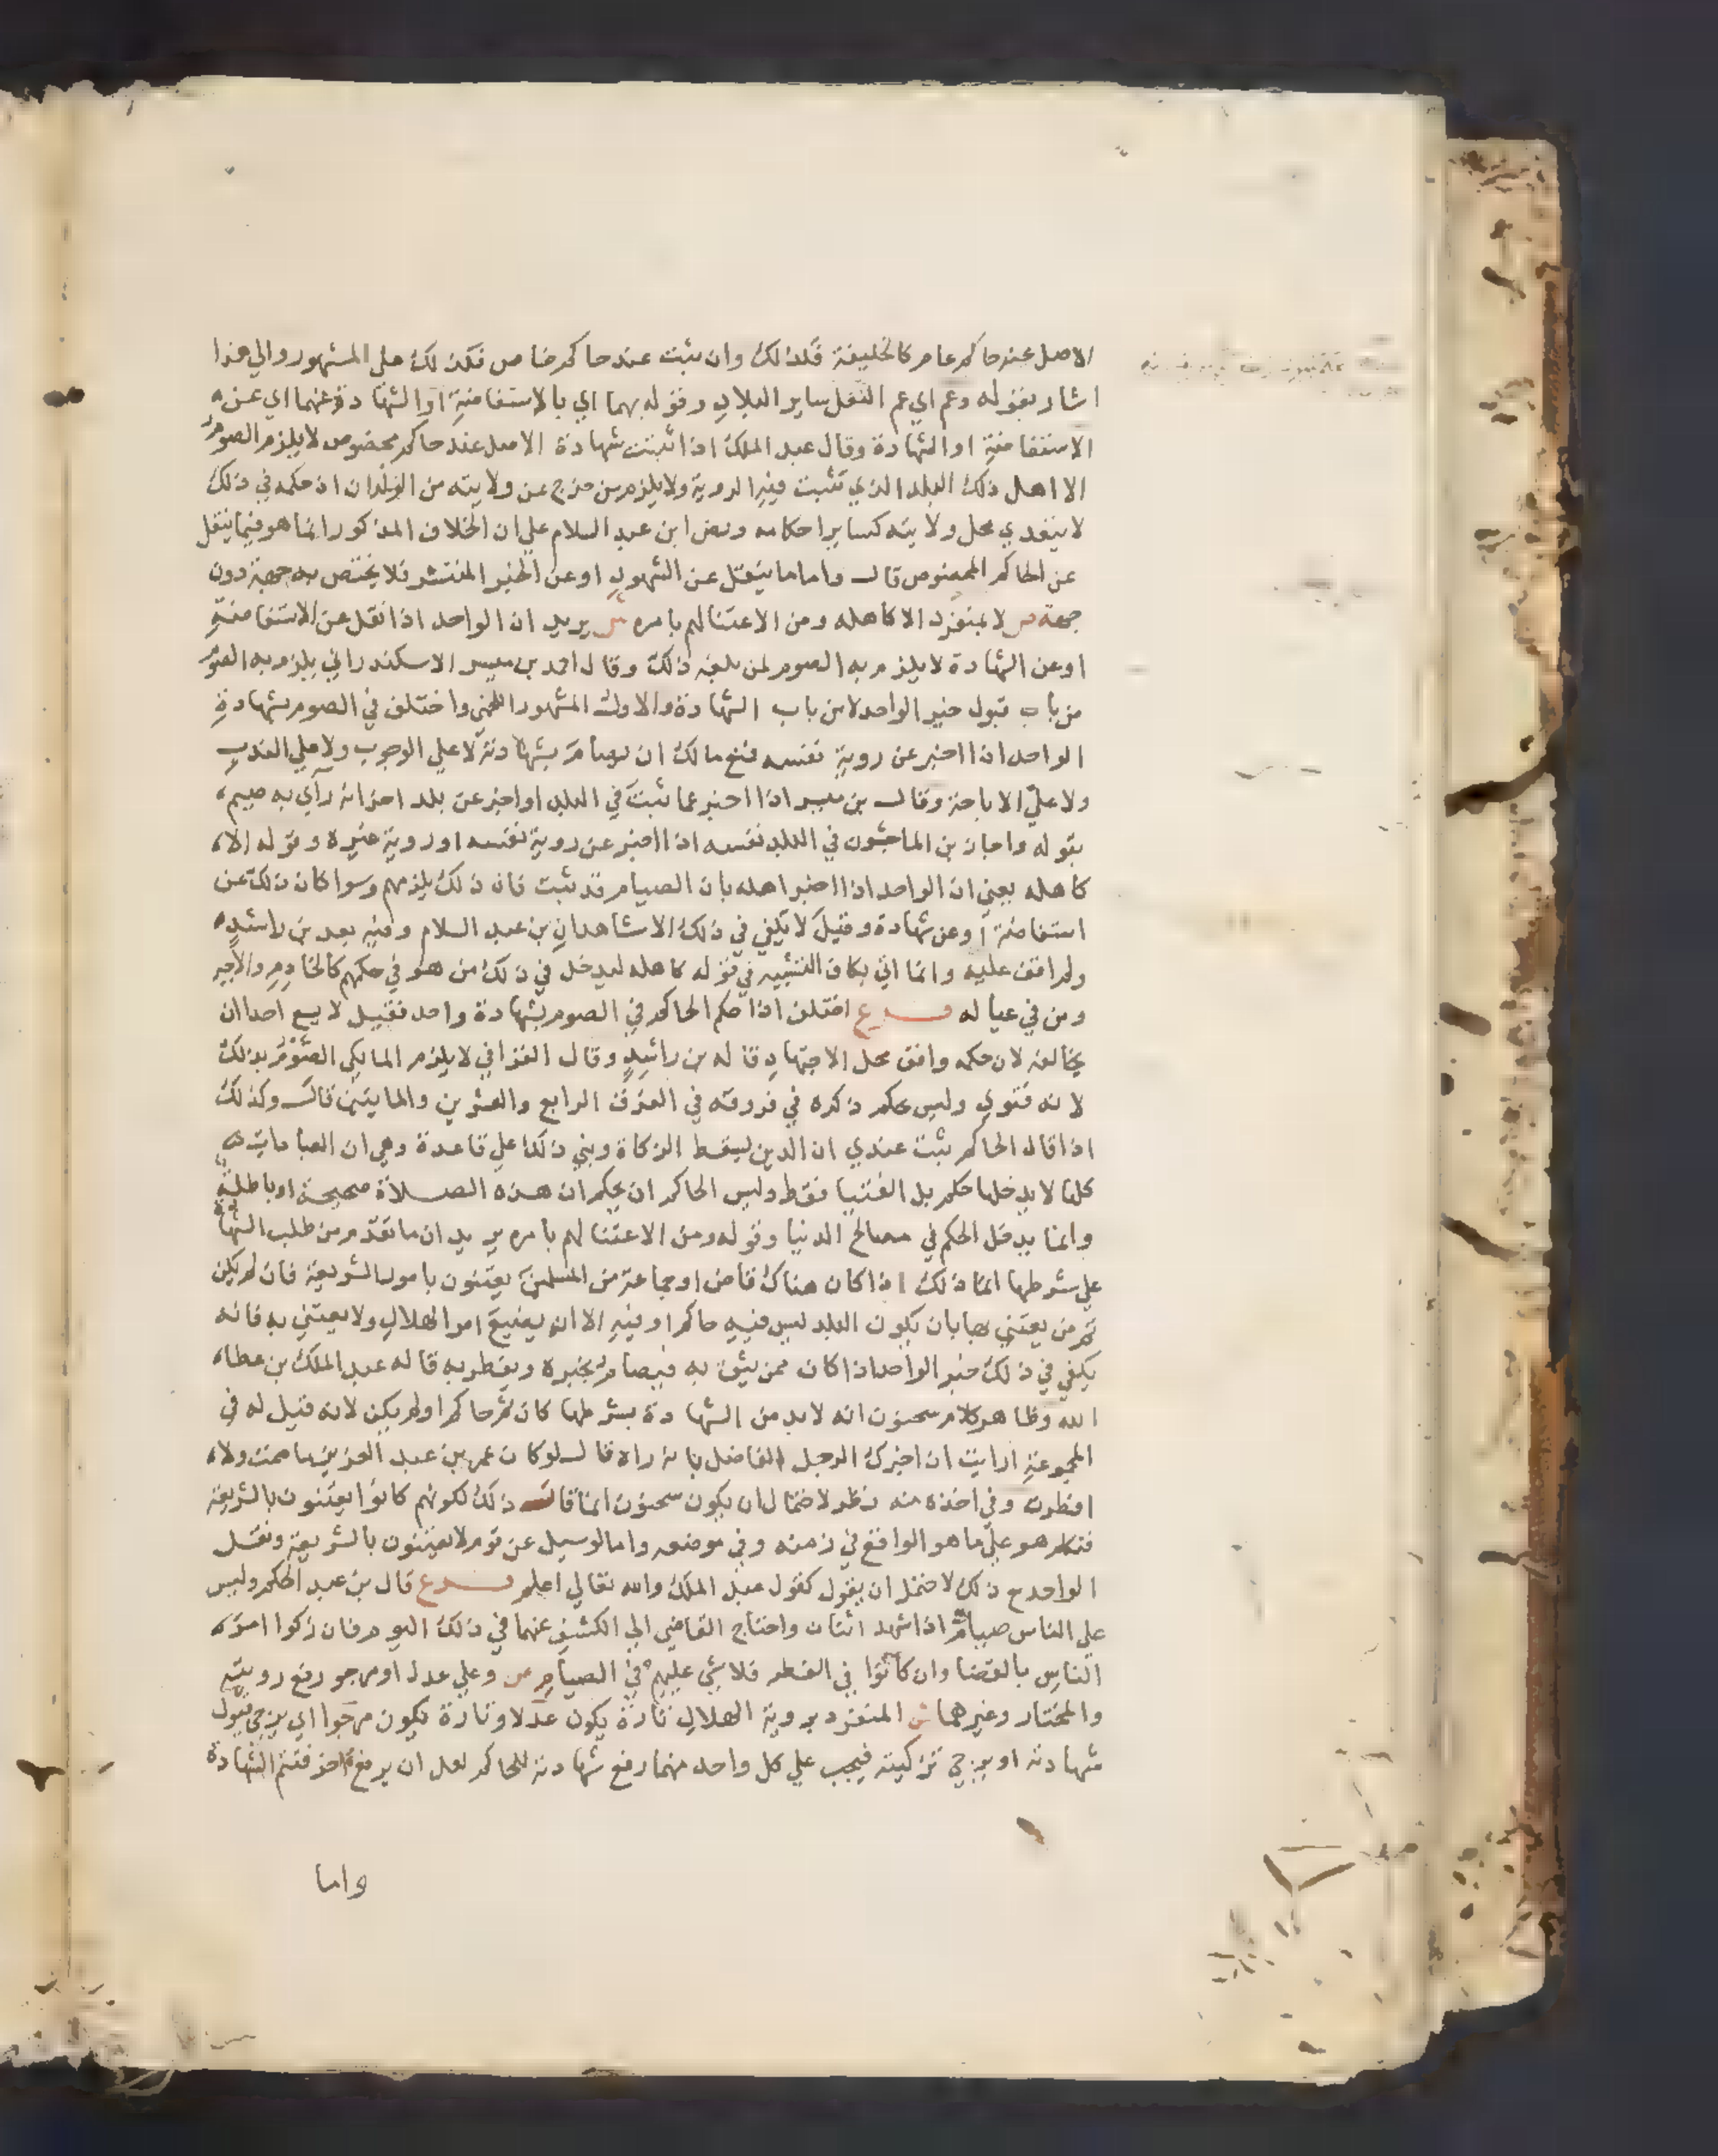 الاصل عند حاكم عام كالخليفة فكذلك وان ثبت عند حاكم خاص فكذلك على المشهور والي هذا
اشار بقوله وعم اي عم النقل ساير البلاد وقوله بهما اي بالاستفاضة او الشهادة عنهما اي عن
الاستفاضة او الشهادة وقال عبد الملك اذا ثبتت شهادة الاصل عند حاكم مخصوص لا يلزم الصوم
الا اهل ذلك البلد الذي تثبت فيه الروية ولا يلزم من خرج عن ولايته من البلدان اذ حكمه في ذلك
لا يتعدي محل ولايته كساير احكامه ونص ابن عبد السلام علي ان الخلاف المذكور انما هو فيما ينقل
عن الحاكم المخصوص قال واما ما ينقل عن الشهود او عن الخبر المنتشر فلا يختص به جهة دون
جهة ص لا بمنفرد الا كاهله ومن لا اعتنا لهم بامره ش يريد ان الواحد اذا نقل عن الاستفاضة
او عن الشهادة لا يلزم به الصوم لمن بلغه ذلك وقال احمد بن ميسر الاسكندراني يلزم به الصوم
من باب قبول خبر الواحد لا من باب الشهادة والاول المشهور اللخمي واختلف في الصوم بشهادة
الواحد اذا اخبر عن روية نفسه فمنع مالك ان يصام بشهادته لا علي الوجوب ولا علي الندب
ولا علي الاباحة وقال بن ميسر اذا اخبر عما ثبت في البلد او اخبر عن بلد اخر انه رآي به صيم
بقوله واجاز بن الماجشون في البلد نفسه اذا اخبر عن روية نفسه او روية غيره وقوله الا
كاهله يعني ان الواحد اذا اخبر اهله بان الصيام قد ثبت فان ذلك يلزمهم وسوا كان ذلك عن
استفاضة او عن شهادة وقيل لا يكفي في ذلك الا شاهدان بن عبد السلام وفيه بعد بن راشد
ولم اقف عليه وانما اتي بكاف التشبيه في قوله كاهله ليدخل في ذلك من هو في حكمهم كالخادم والاجير
ومن في عياله فرع اختلف اذا حكم الحاكم في الصوم بشهادة واحد فقيل لا يسع احدا ان
يخالف لان حكمه وافق محل الاجتهاد قاله بن راشد وقال القرافي لا يلزم المالكي الصوم بذلك
لانه فتوي وليس بحكم ذكره في فروقه في الفرق الرابع والعشرين والمايتين قال وكذلك
اذا قال الحاكم ثبت عندي ان الدين يسقط الزكاة وبني ذلك علي قاعدة وهي ان العبادات
كلها لا يدخلها حكم بل الفتيا فقط وليس الحاكم ان يحكم ان هذه الصلاة صحيحة او باطلة
وانما يدخل الحكم في مصالح الدنيا وقوله ومن لا اعتنا لهم بامره يريد ان ما تقدم من طلب الشهادة
علي شرطها انما ذلك اذا كان هناك قاض او جماعة من المسلمين يعتنون بامور الشريعة فان لم يكن
ثم من يعتني بها بان يكون البلد ليس فيه حاكم او فيه الا انه يضيع امر الهلال ولا يعتني به فانه
يكفي في ذلك خبر الواحد اذا كان ممن يثق به فيصام بخبره ويفطر به قاله عبد الملك بن عطاء
الله وظاهر كلام سحنون انه لا بد من الشهادة بشرطها كان ثم حاكم او لم يكن لانه قيل له في
المجموعة ارايت ان اخبرك الرجل الفاضل بانه راه قال لو كان عمر بن عبد العزيز ما صمت ولا
افطرت وفي اخذه منه نظر لاحتمال ان يكون سحنون انما قال ذلك لكونهم كانوا يعتنون بالشريعة
فتكلم هو علي ما هو الواقع في زمنه وفي موضعه واما لو سيل عن قوم لا يعتنون بالشريعة ونقل
الواحد ح ذلك لاحتمل ان يقول كقول عبد الملك والله تعالي اعلم فرع قال بن عبد الحكم وليس
علي الناس صيام اذا شهد اثنان واحتاج القاضي الي الكشف عنهما في ذلك اليوم فان زكوا امر
الناس بالقضا وان كانوا في الفطر فلا شي عليهم في الصيام ص وعلي عدل او مرجو رفع رويته
والمختار وغيرهما ش المنفرد بروية الهلال تارة يكون عدلا وتارة يكون مرجوا اي يرجي قبول
شهادته او يرجي تزكيته فيجب علي كل واحد منهما رفع شهادته للحاكم لعل ان يرفع اخر فتتم الشهادة
واما